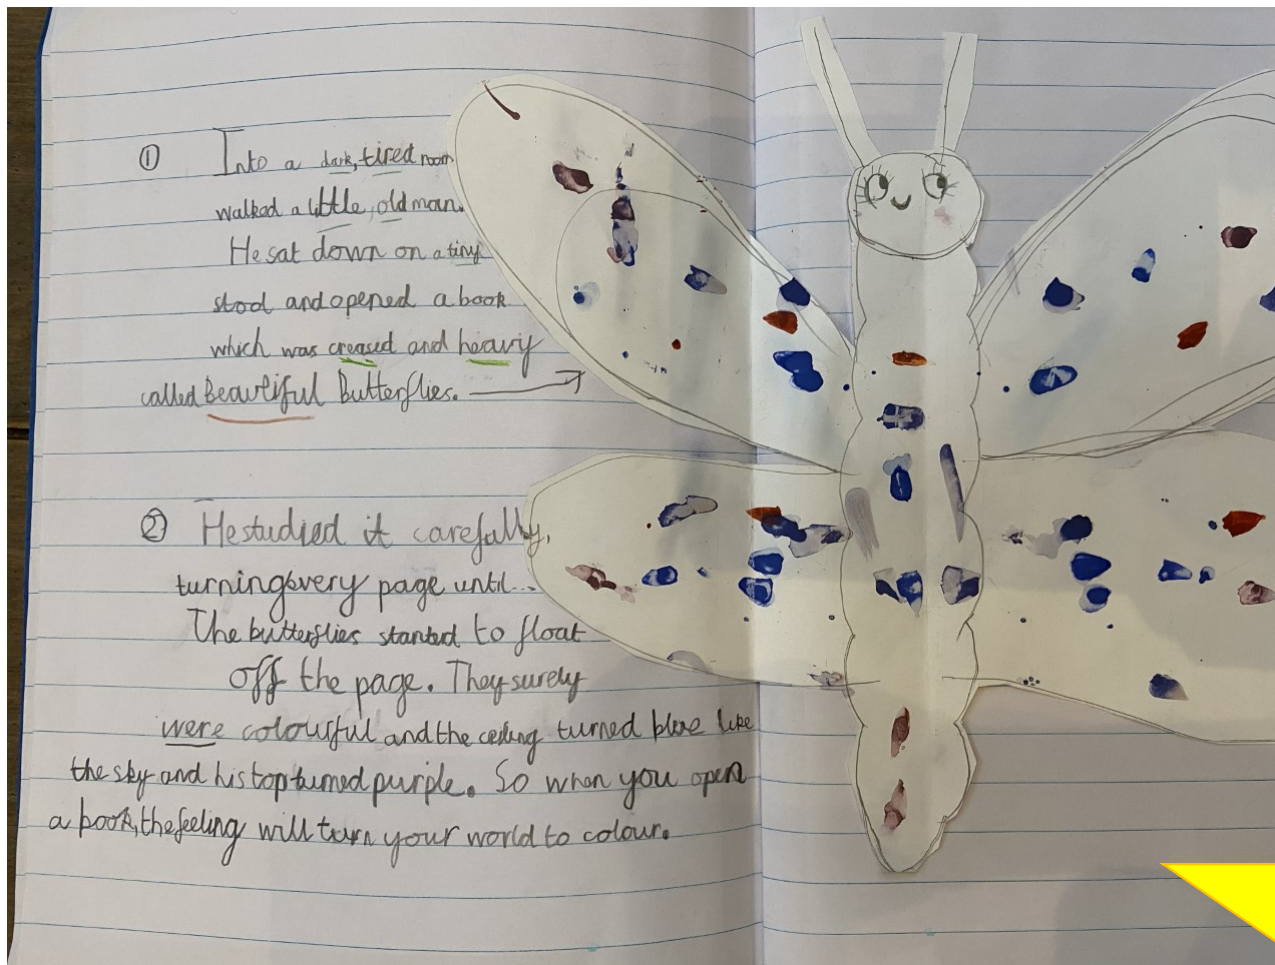 ① Into a dark, tired room
walked a little, old man.
He sat down on a tiny
stool and opened a book
which was creased and heavy
called Beautiful Butterflies.
② He studied it carefully,
turning every page until...
The butterflies started to float
off the page. They surely
were colourful and the ceiling turned blue like
the sky and his top turned purple. So when you open
a book, the feeling will turn your world to colour.